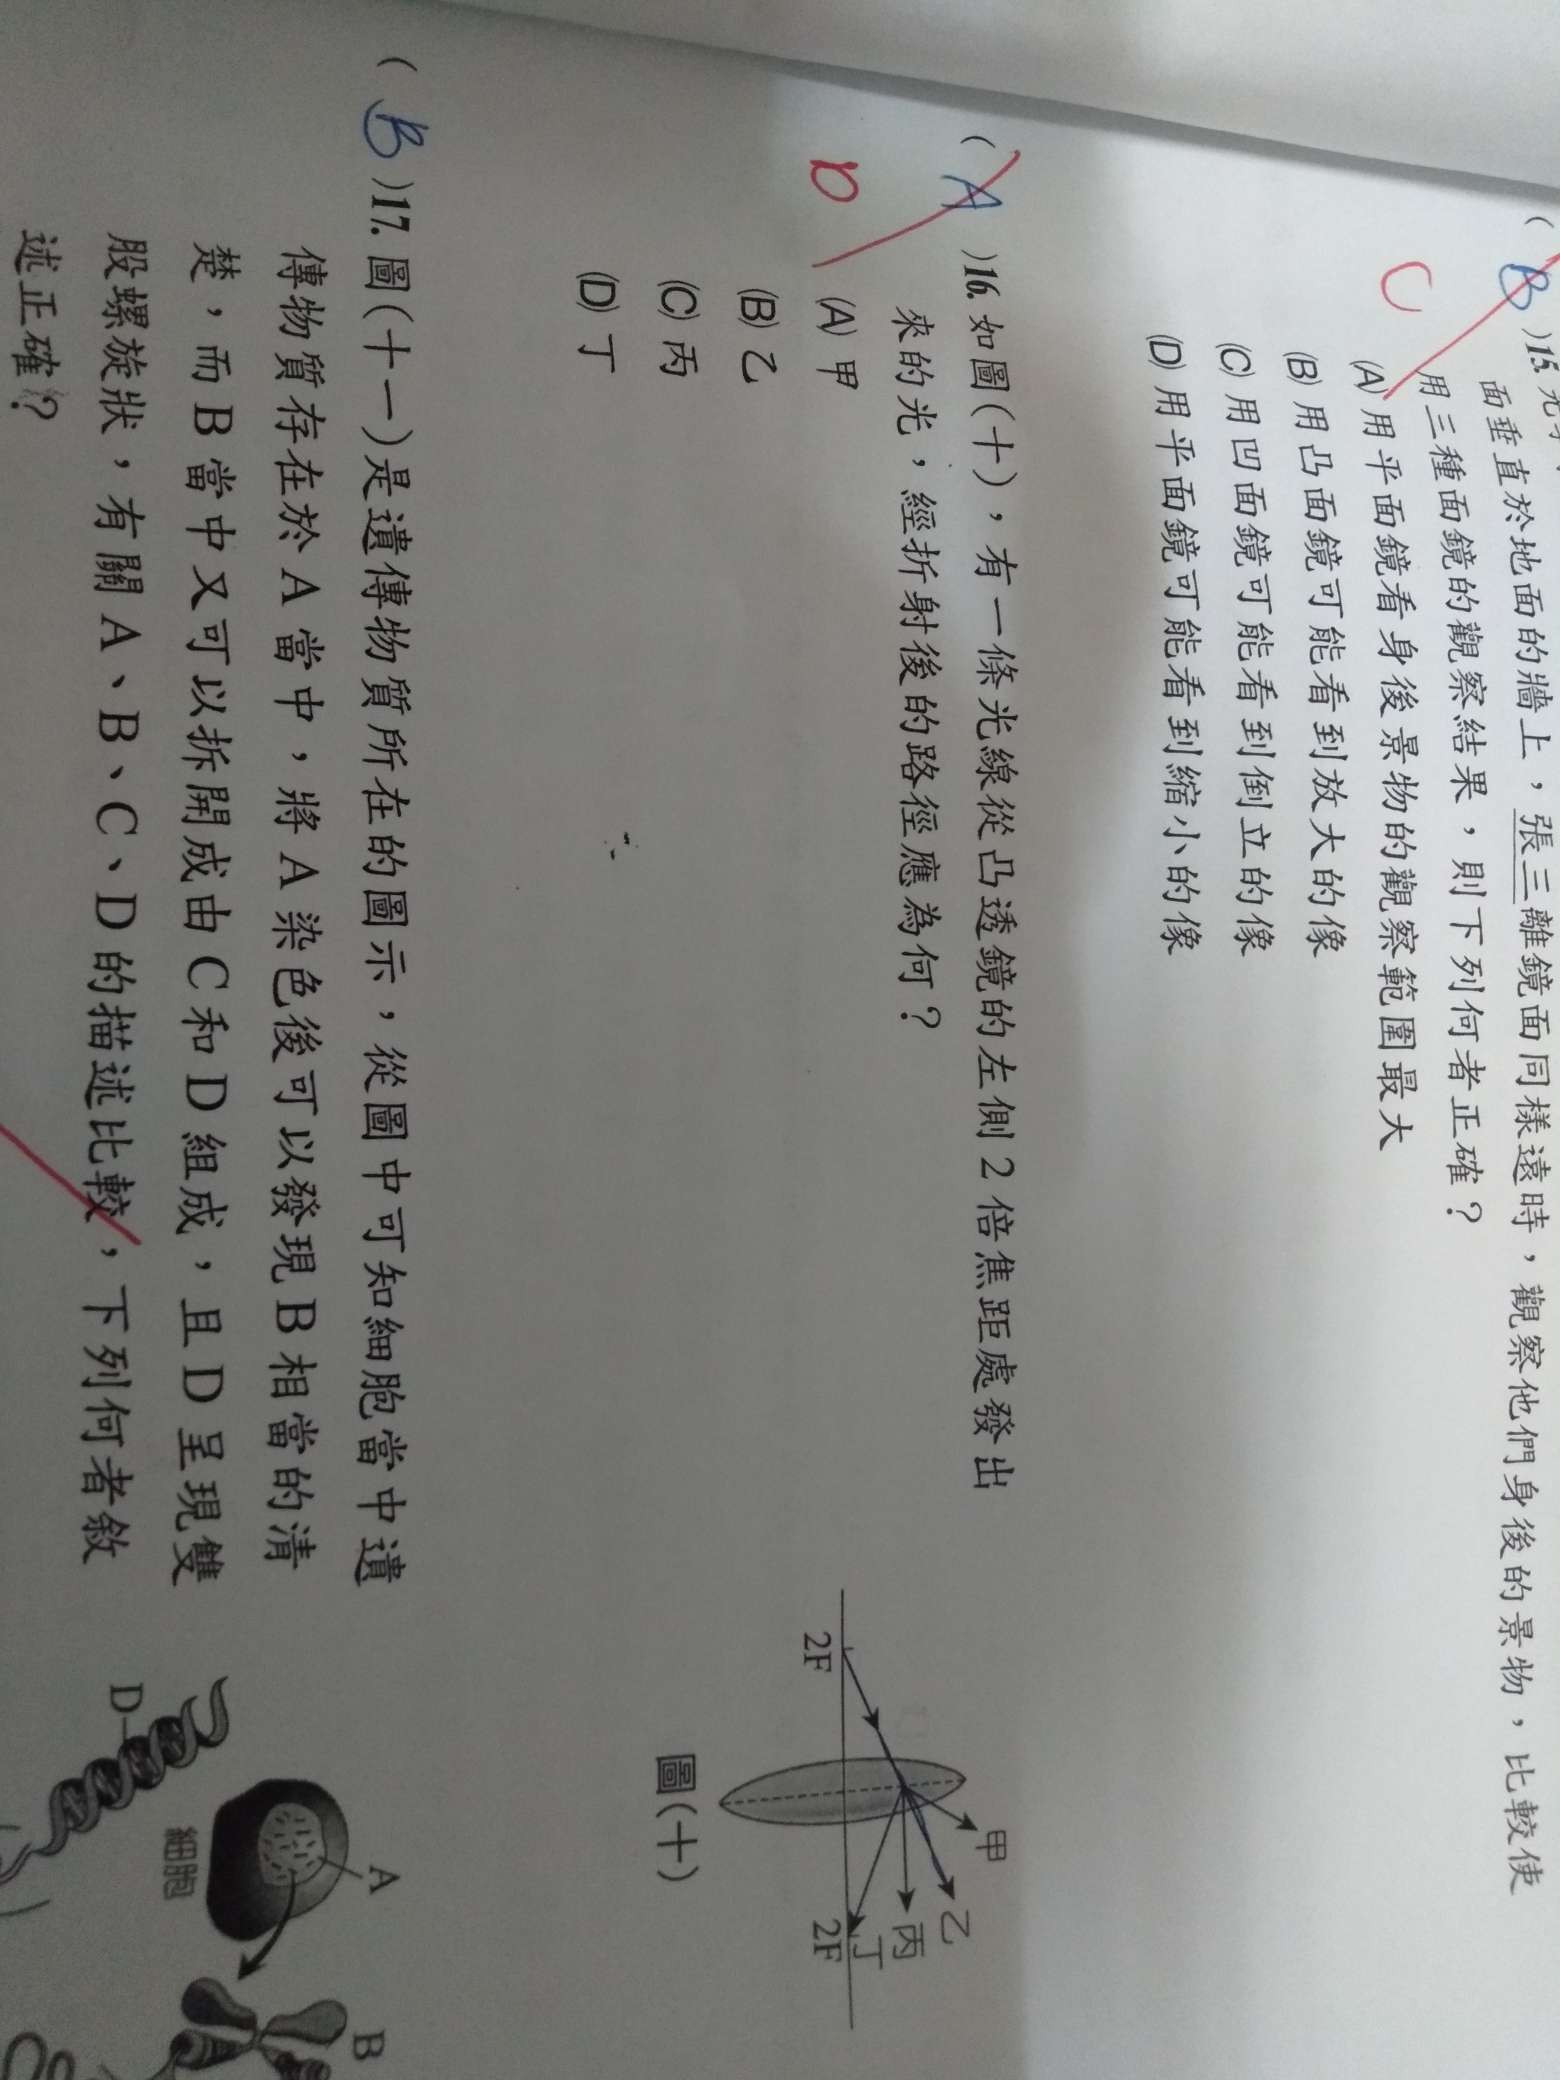 ( B )15. 光
面垂直於地面的牆上，張三離鏡面同樣遠時，觀察他們身後的景物，比較使
用三種面鏡的觀察結果，則下列何者正確？
C
(A) 用平面鏡看身後景物的觀察範圍最大
(B) 用凸面鏡可能看到放大的像
(C) 用凹面鏡可能看到倒立的像
(D) 用平面鏡可能看到縮小的像
( A )16. 如圖(十)，有一條光線從凸透鏡的左側 2 倍焦距處發出
來的光，經折射後的路徑應為何？
D
(A) 甲
(B) 乙
(C) 丙
(D) 丁
甲
乙
丙
丁
2F
2F
圖(十)
( B )17. 圖(十一)是遺傳物質所在的圖示，從圖中可知細胞當中遺
傳物質存在於 A 當中，將 A 染色後可以發現 B 相當的清
楚，而 B 當中又可以拆開成由 C 和 D 組成，且 D 呈現雙
股螺旋狀，有關 A、B、C、D 的描述比較，下列何者敘
述正確？
A
B
細胞
D